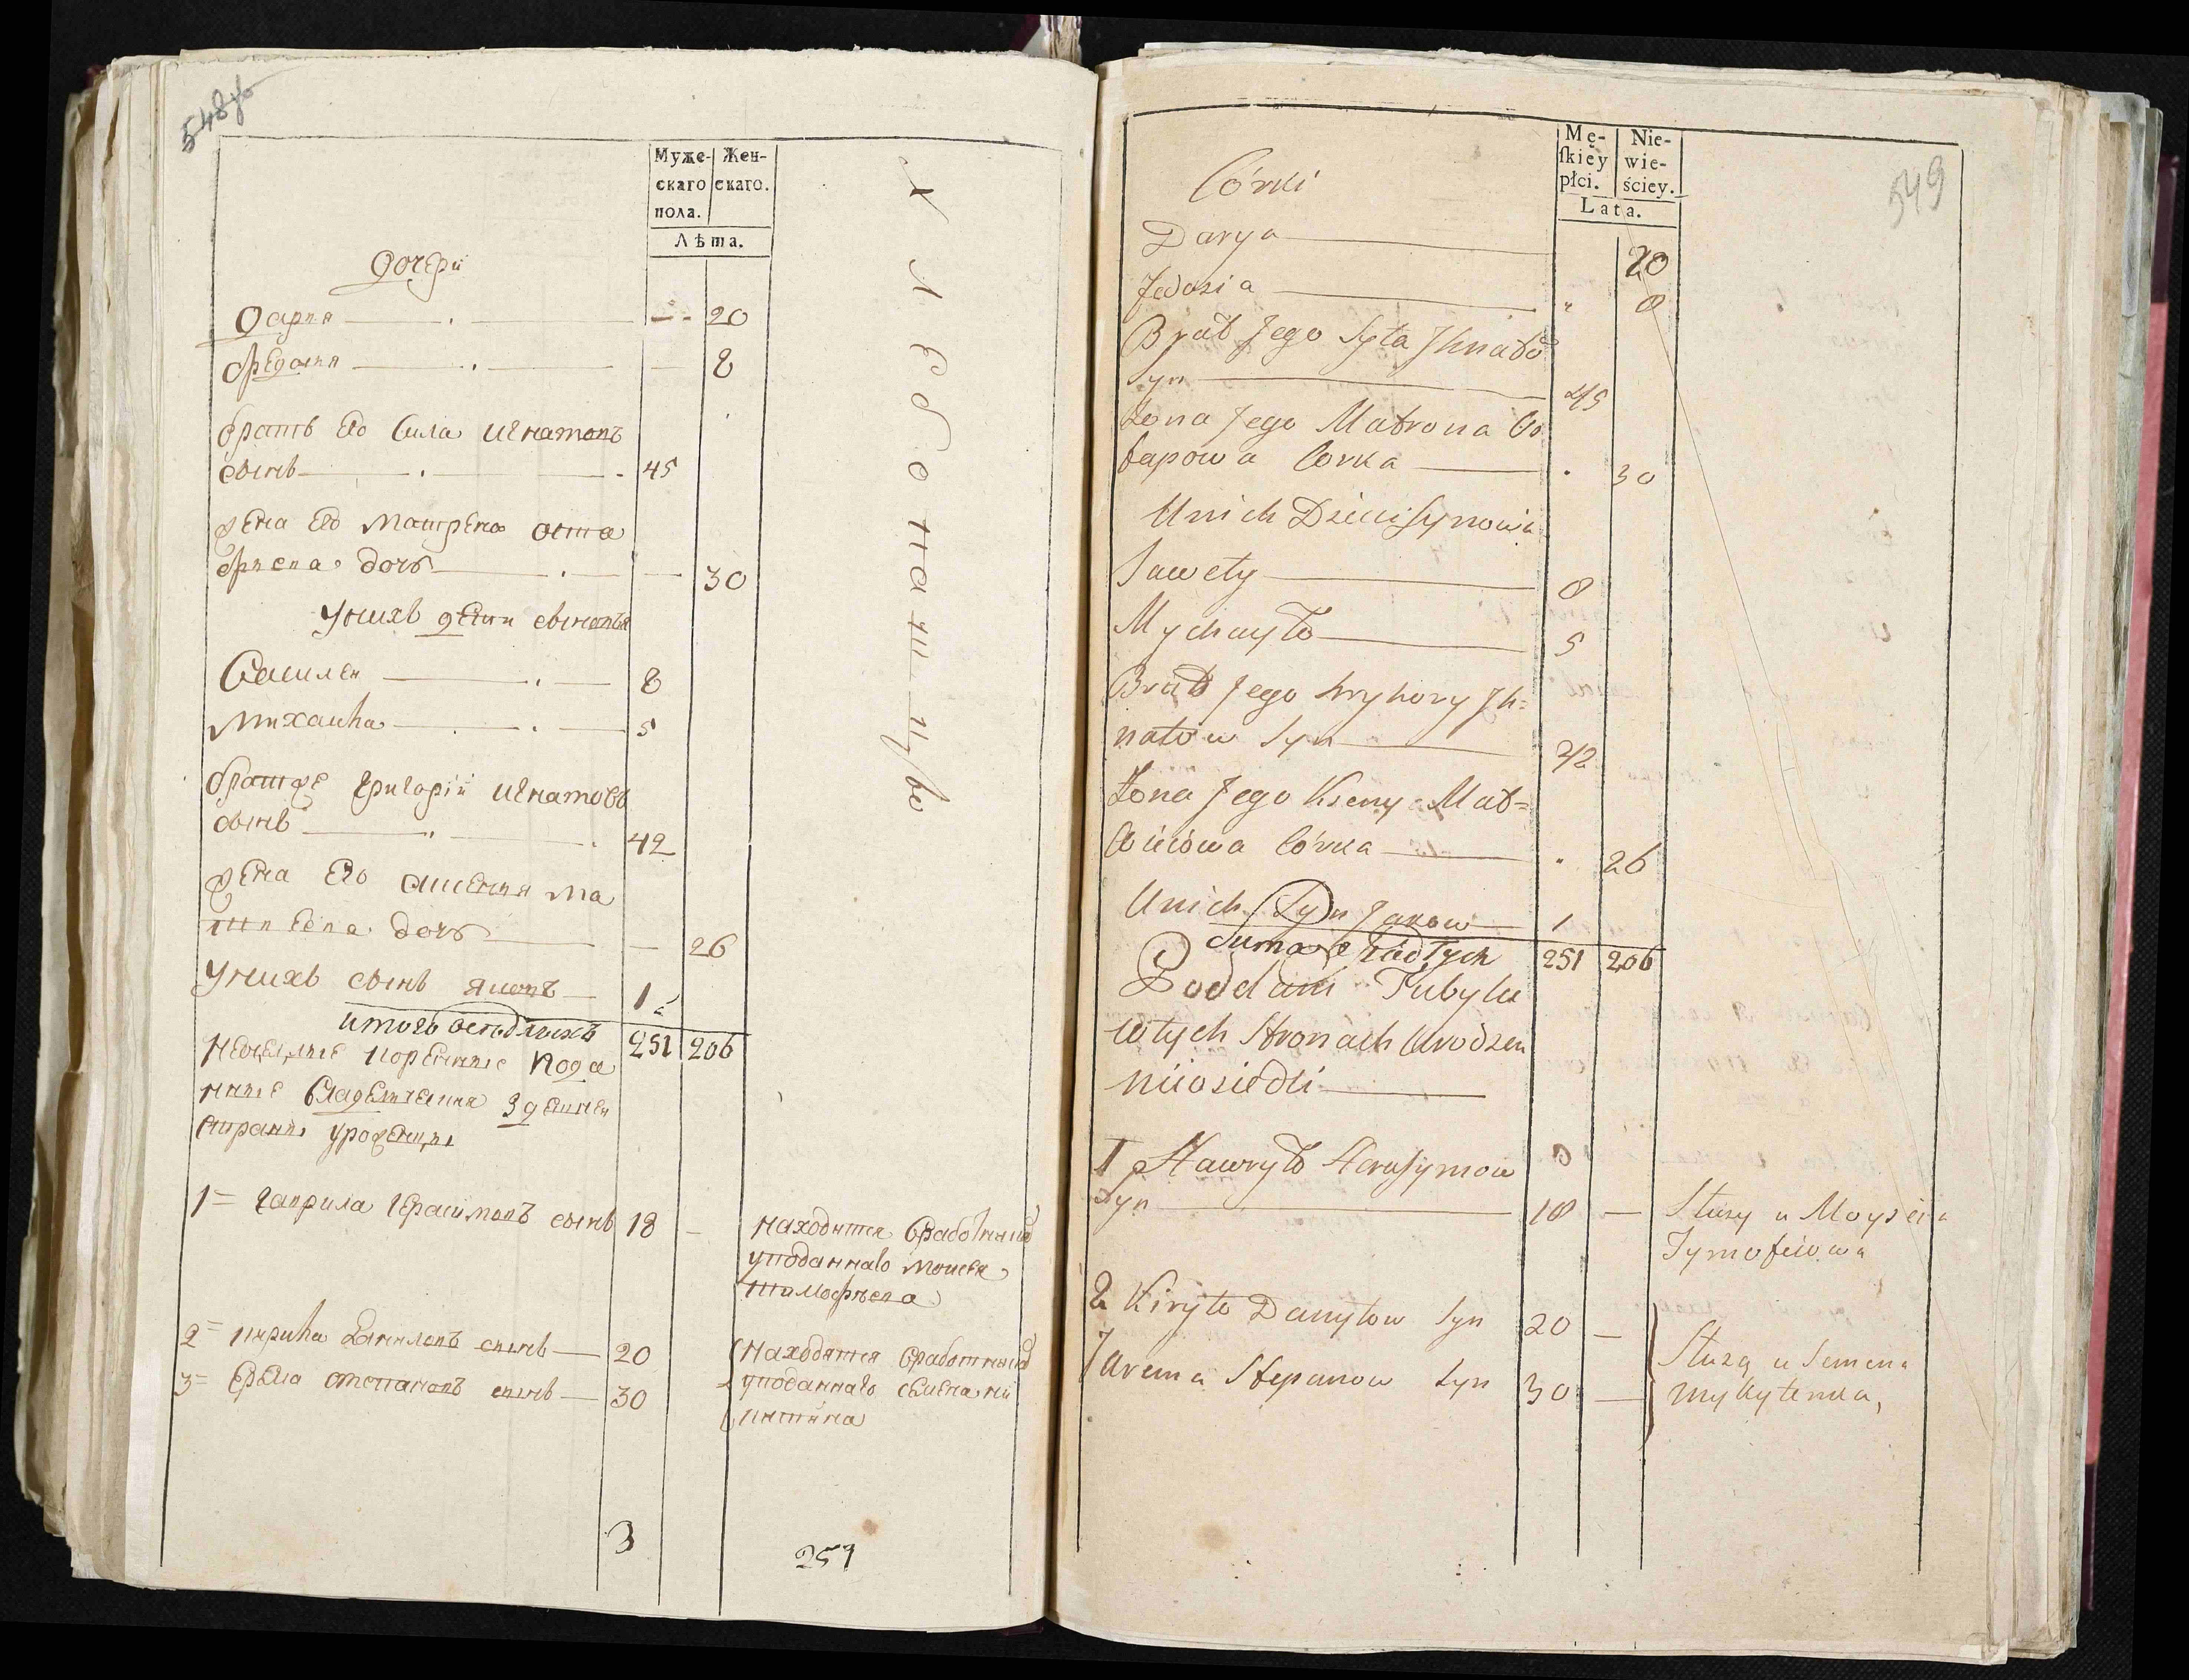 548об
Муже-
скаго
пола.
Жен-
скаго.
Лѣта.
дочери
Дария — 20
Федосия — 8
братъ Его Сила Игнатовъ
сынъ 45
жена Его Матрена оста
фиева дочь — 30
У нихъ дети сыновья
Савелеи 8
Михаила 5
братже Григорiй Игнатовъ
сынъ 42
жена Его Аксения Ма
твеева дочь — 26
У нихъ сынъ Яковъ 1
итого оседлыхъ 251 206
коренные пода
нные здешнеи
стране уроженцы
1 = Гаврила Герасимовъ сынъ 18 —
находится в работниках
у поданнаго Моисея
Тимофеева
2 = Кирила Даниловъ сынъ — 20
3 = Ерема Степановъ сынъ — 30
находятся в работниках
у поданнаго Семена Ни
китина
3
251
549
Mę-
ſkiey
płci.
Nie-
wie-
ściey.
Lata.
Córki
Darya 20
Fedosia " 8
Brat Jego Syła Ihnató
Syn 45
Żona Jego Matrona Os
tapowa Corka . 30
U nich Dzieci Synowie
Sawety 8
Mychayło 5
Brat Jego Hryhory Ih=
natów Syn 42
Żona Jego Kseny Mat=
wiiówa Córka " 26
U nich Syn Jakow 1
Suma Osiadłych 251 206
Poddani Tubylcy
w tych Stronach Urodzeni
nieosiedli
1 Hawryło Harasymow
Syn 18 —
Służy u Moyseia
Tymofeiowa
2 Kiryło Danyłow Syn 20 —
Jarema Stepanow Syn 30 —
Służą u Semena
Mykytenka,